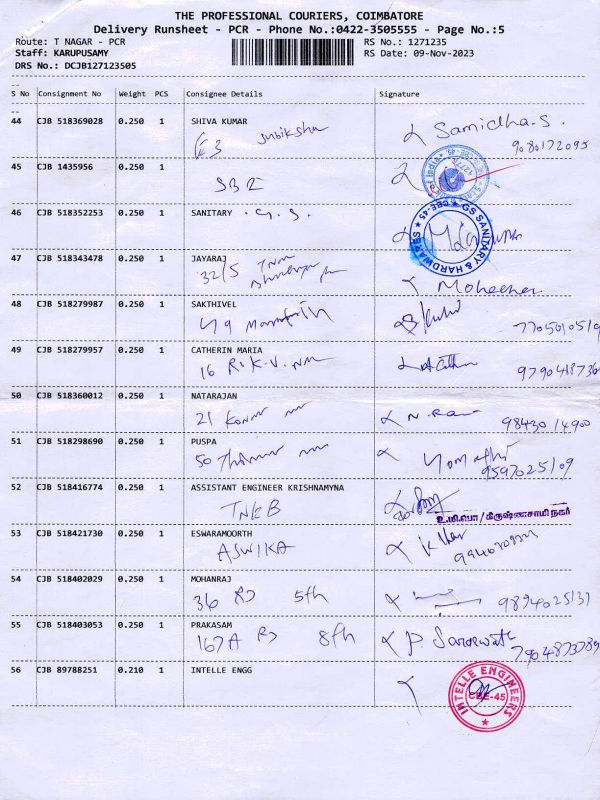 THE PROFESSIONAL COURIERS, COIMBATORE
Delivery Runsheet - PCR - Phone No.:0422-3505555 - Page No.:5
Route: T NAGAR - PCR RS No.: 1271235
Staff: KARUPUSAMY RS Date: 09-Nov-2023
DRS No.: DCJB127123505
S No Consignment No Weight PCS Consignee Details Signature
44 CJB 518369028 0.250 1 SHIVA KUMAR
E3 Subiksha Samidha.S.
9080172095
45 CJB 1435956 0.250 1
SBI
46 CJB 518352253 0.250 1 SANITARY . G. S.
GS SANITARY & HARDWARES CBE-45
47 CJB 518343478 0.250 1 JAYARAJ
32/5
48 CJB 518279987 0.250 1 SAKTHIVEL
49 CJB 518279957 0.250 1 CATHERIN MARIA
16 R.K.V. nm
50 CJB 518360012 0.250 1 NATARAJAN
21 N. Ra
9843014900
51 CJB 518298690 0.250 1 PUSPA
50
9597025109
52 CJB 518416774 0.250 1 ASSISTANT ENGINEER KRISHNAMYNA
TNEB
உ.மி.பொ/கிருஷ்ணசாமி நகர்
53 CJB 518421730 0.250 1 ESWARAMOORTH
ASWIKA
54 CJB 518402029 0.250 1 MOHANRAJ
36 RD 5th 9894025131
55 CJB 518403053 0.250 1 PRAKASAM
167A RD 8th P Saraswathi
7904873789
56 CJB 89788251 0.210 1 INTELLE ENGG
INTELLE ENGINEERS CBE-45